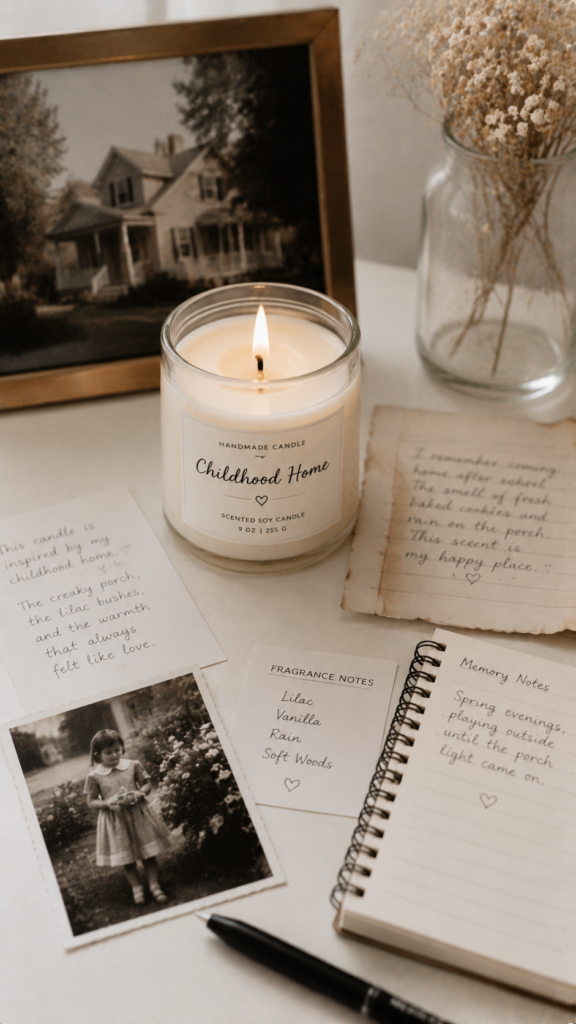 HANDMADE CANDLE
Childhood Home
SCENTED SOY CANDLE
9 OZ | 255 G
I remember coming
home after school.
The smell of fresh
baked cookies and
rain on the porch.
This scent is
my happy place.
This candle is
inspired by my
childhood home.
The creaky porch,
the lilac bushes,
and the warmth
that always
felt like love.
FRAGRANCE NOTES
Lilac
Vanilla
Rain
Soft Woods
Memory Notes
Spring evenings,
playing outside
until the porch
light came on.